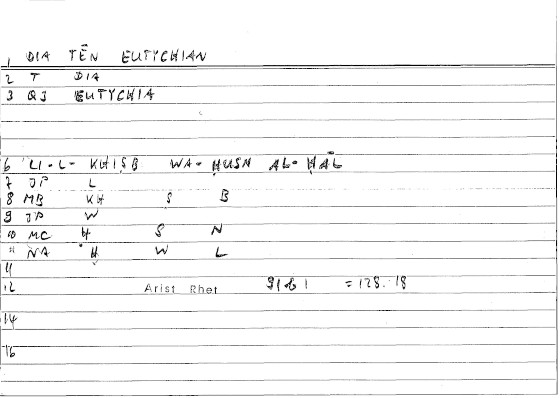 1 DIA TĒN EUTYCHIAN
2 T DIA
3 QJ EUTYCHIA
6 LI-L- KHIṢB WA- ḤUSN AL-ḤĀL
7 JP L
8 MB KH Ṣ B
9 JP W
10 MC Ḥ S N
11 NA Ḥ W L
11
12 Arist Rhet = 128.18
14
16